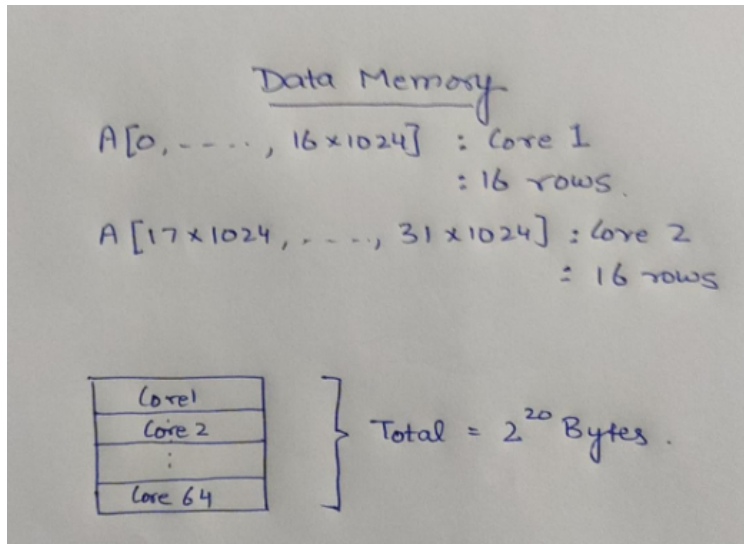 Data Memory
A[0, ----, 16×1024] : Core 1
: 16 rows.
A[17×1024, ----, 31×1024] : Core 2
: 16 rows
Core1
Core 2
:
Core 64
Total = 2²⁰ Bytes.